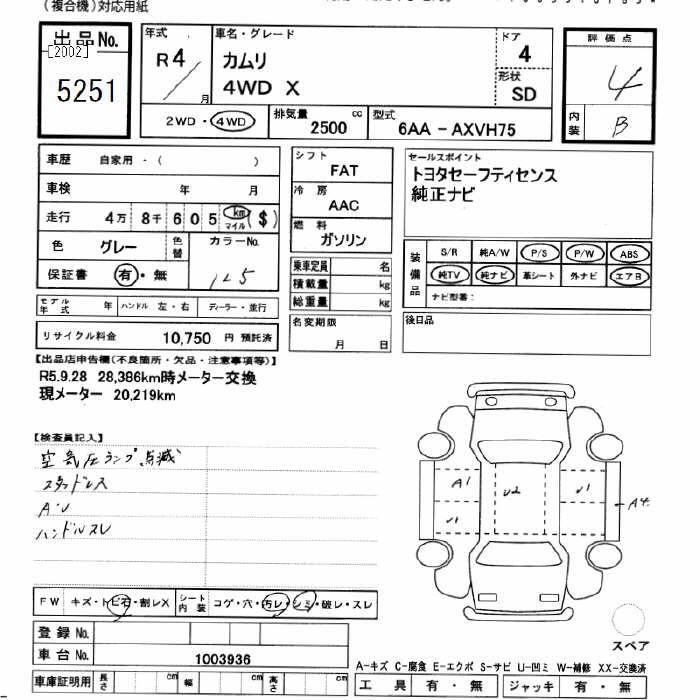 (複合機)対応用紙
出品No.
[2002]
5251
年式
R4/
月
車名・グレード
カムリ
4WD X
ドア
4
形状
SD
評価点
4
内装
B
2WD・4WD
排気量
2500
cc
型式
6AA－AXVH75
車歴 自家用 -( )
車検 年 月
走行 4万 8千 6 0 5 km マイル ($)
色 グレー 色替 カラーNo.
保証書 有・無
モデル年式 年 ハンドル 左・右 ディーラー・並行
リサイクル料金 10,750 円 預託済
シフト
FAT
冷房
AAC
燃料
ガソリン
乗車定員 名
積載量 kg
総重量 kg
名変期限
月 日
セールスポイント
トヨタセーフティセンス
純正ナビ
装備品
S/R 純A/W P/S P/W ABS
純TV 純ナビ 革シート 外ナビ エアB
ナビ型番:
後日品
【出品店申告欄(不良箇所・欠品・注意事項等)】
R5.9.28 28,386km時メーター交換
現メーター 20,219km
【検査員記入】
空気圧ランプ点滅
スタッドレス
ハンドルスレ
A1
U2
A4
FW キズ・トビ石・割レX シート内装 コゲ・穴・汚レ・シミ・破レ・スレ
登録No.
車台No. 1003936
車庫証明用 長さ cm 幅 cm 高さ cm
スペア
A-キズ C-腐食 E-エクボ S-サビ U-凹ミ W-補修 XX-交換済
工具 有・無 ジャッキ 有・無